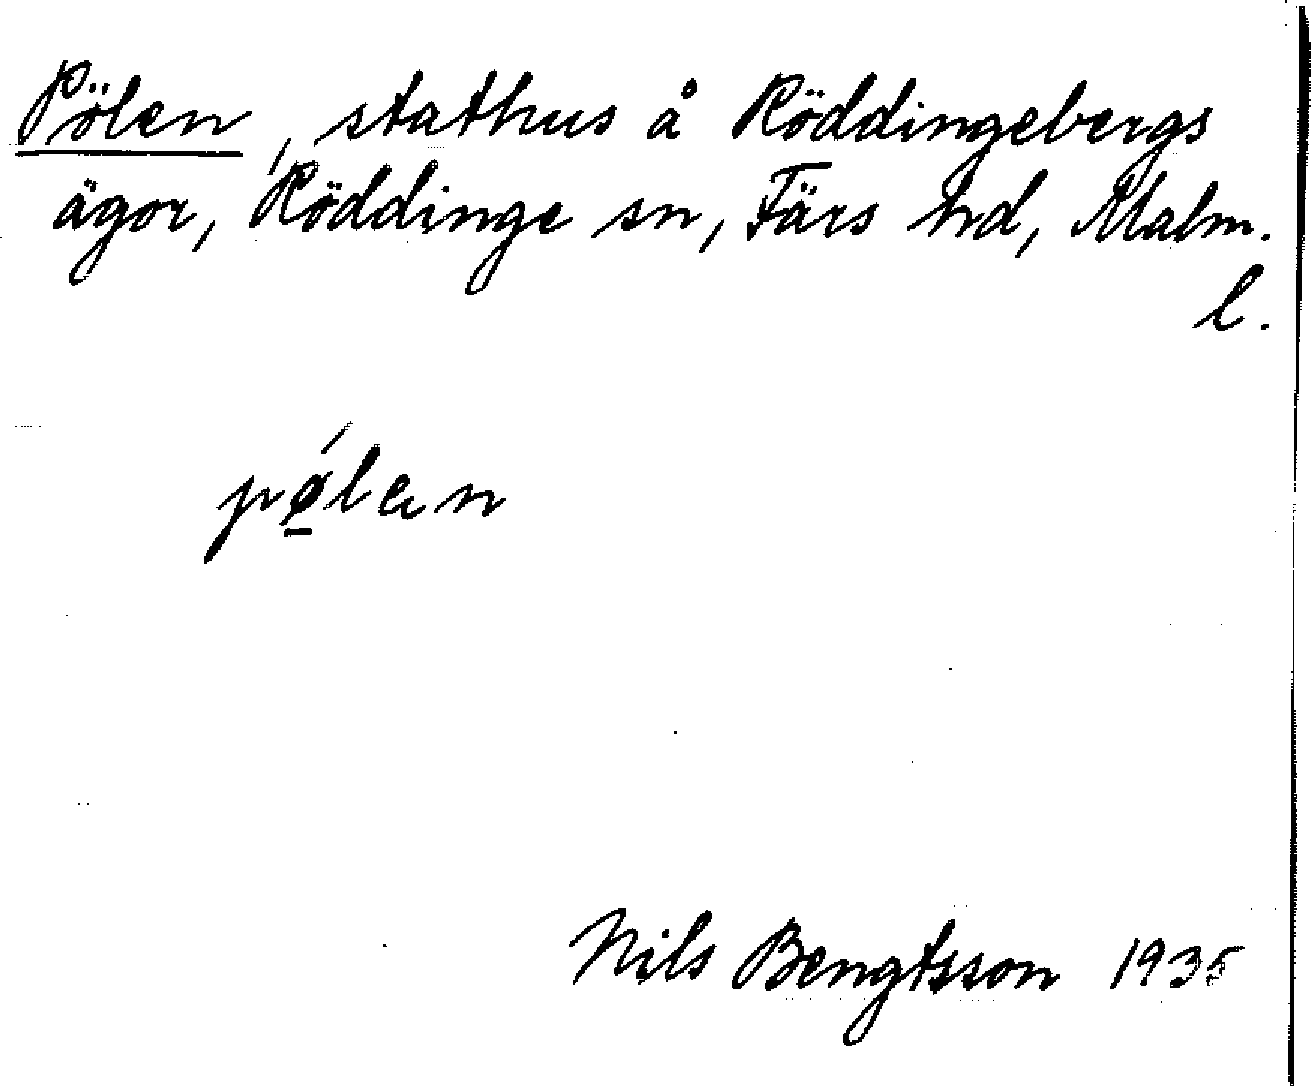 Pölen, stathus å Röddingebergs
ägor, Röddinge sn, Färs hd, Malm.
l.
pǿ̱lɛn
Nils Bengtsson 1935